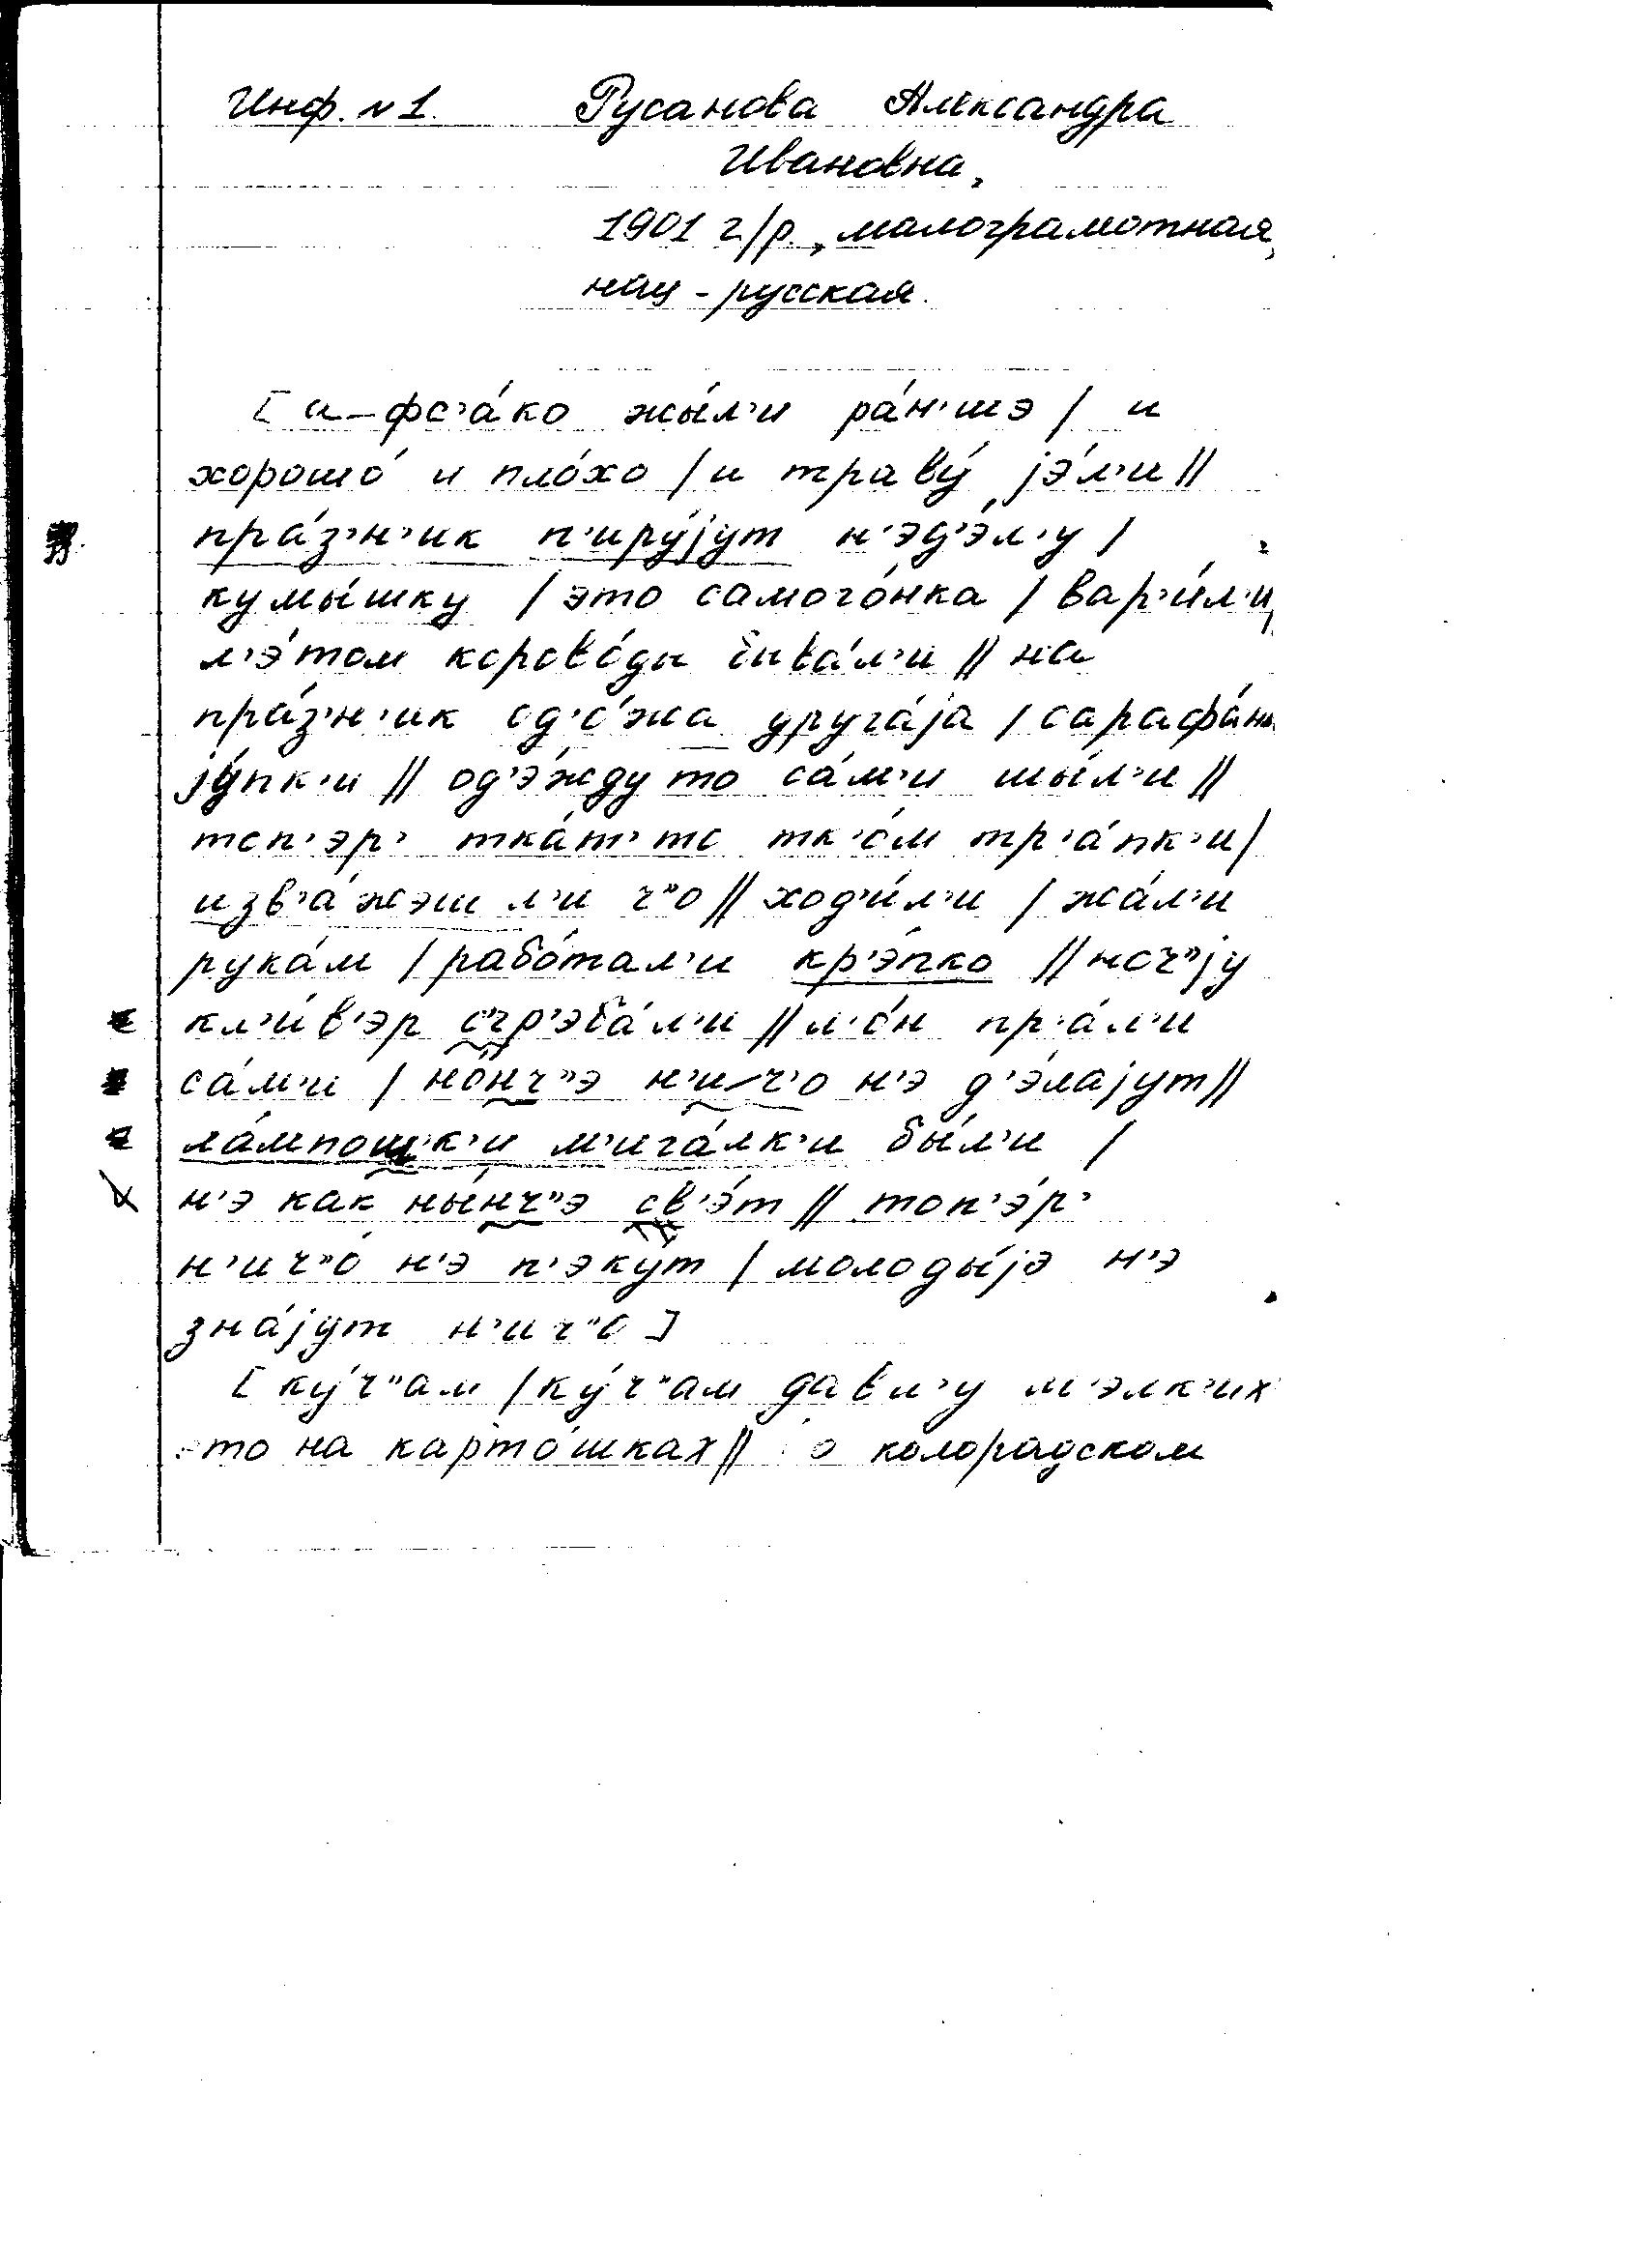 Инф. N 1. Русанова Александра
Ивановна,
1901 г/р., малограмотная,
нац - русская.
[ а–фс'а́ко жы́л'и ра́н'шэ / и
хорошо́ и пло́хо / и траву́ jэ́л'и //
пра́з'н'ик п'иру́jут н'эд'э́л'у /
кумы́шку / это самого́нка / вар'и́л'и,
л'э́том корово́ды быва́л'и // на
пра́з'н'ик од'о́жа друга́jа / сарафа́ны
jу́пк'и // од'э́жду то са́м'и шы́л'и //
топ'эр' тка́т' то тк'о́м тр'а́пк'и /
изв'а́жэш л'и ч"о // ход'и́л'и / жа́л'и
рука́м / рабо́тал'и кр'э́пко // ноч"jу
кл'и́в'эр сгр'эба́л'и // л'о́н пр'а́л'и
са́м'и / но́нч"э н'и-ч'о н'э д'э́лаjут //
ла́мпошк'и м'ига́лк'и бы́л'и /
н'э как ны́нч"э св'э́т // топ'э́р'
н'ич"о́ н'э п'эку́т / молоды́jэ н'э
зна́jут н'ич"о ]
[ ку́ч"ам / ку́ч"ам давл'у м'элк'их
это на карто́шках // о колорадском